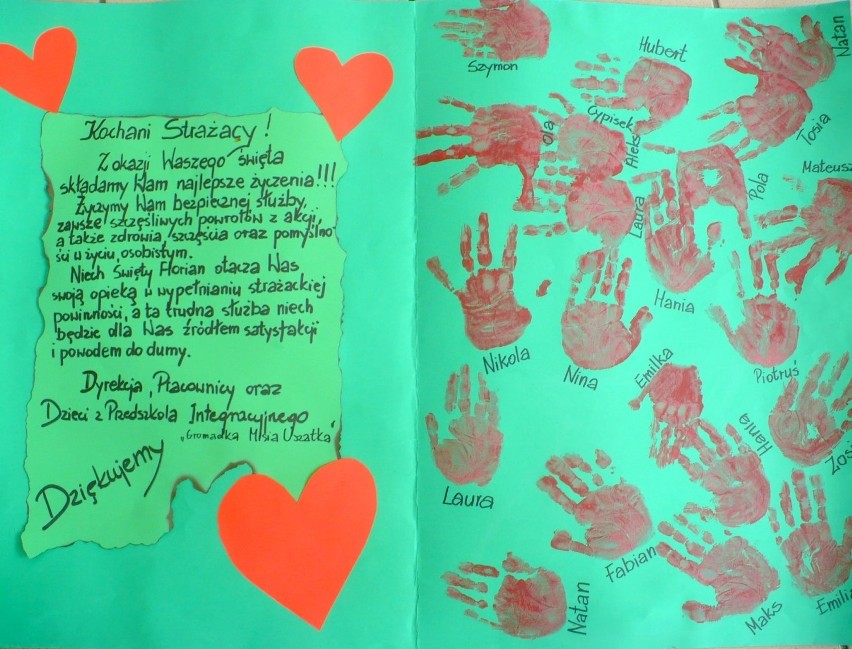 Kochani Strażacy!
Z okazji Waszego święta
składamy Wam najlepsze życzenia!!!
Życzymy Wam bezpiecznej służby,
zawsze szczęśliwych powrotów z akcji,
a także zdrowia, szczęścia oraz pomyślno
ści w życiu osobistym.
Niech Święty Florian otacza Was
swoją opieką w wypełnianiu strażackiej
powinności, a ta trudna służba niech
będzie dla Was źródłem satysfakcji
i powodem do dumy.
Dyrekcja, Pracownicy oraz
Dzieci z Przedszkola Integracyjnego
„Gromadka Misia Uszatka"
Dziękujemy
Szymon
Hubert
Natan
Cypisek
Ola
Aleks
Tosia
Mateusz
Pola
Laura
Hania
Nikola
Nina
Emilka
Piotruś
Hania
Zosi
Laura
Fabian
Natan
Maks
Emilia